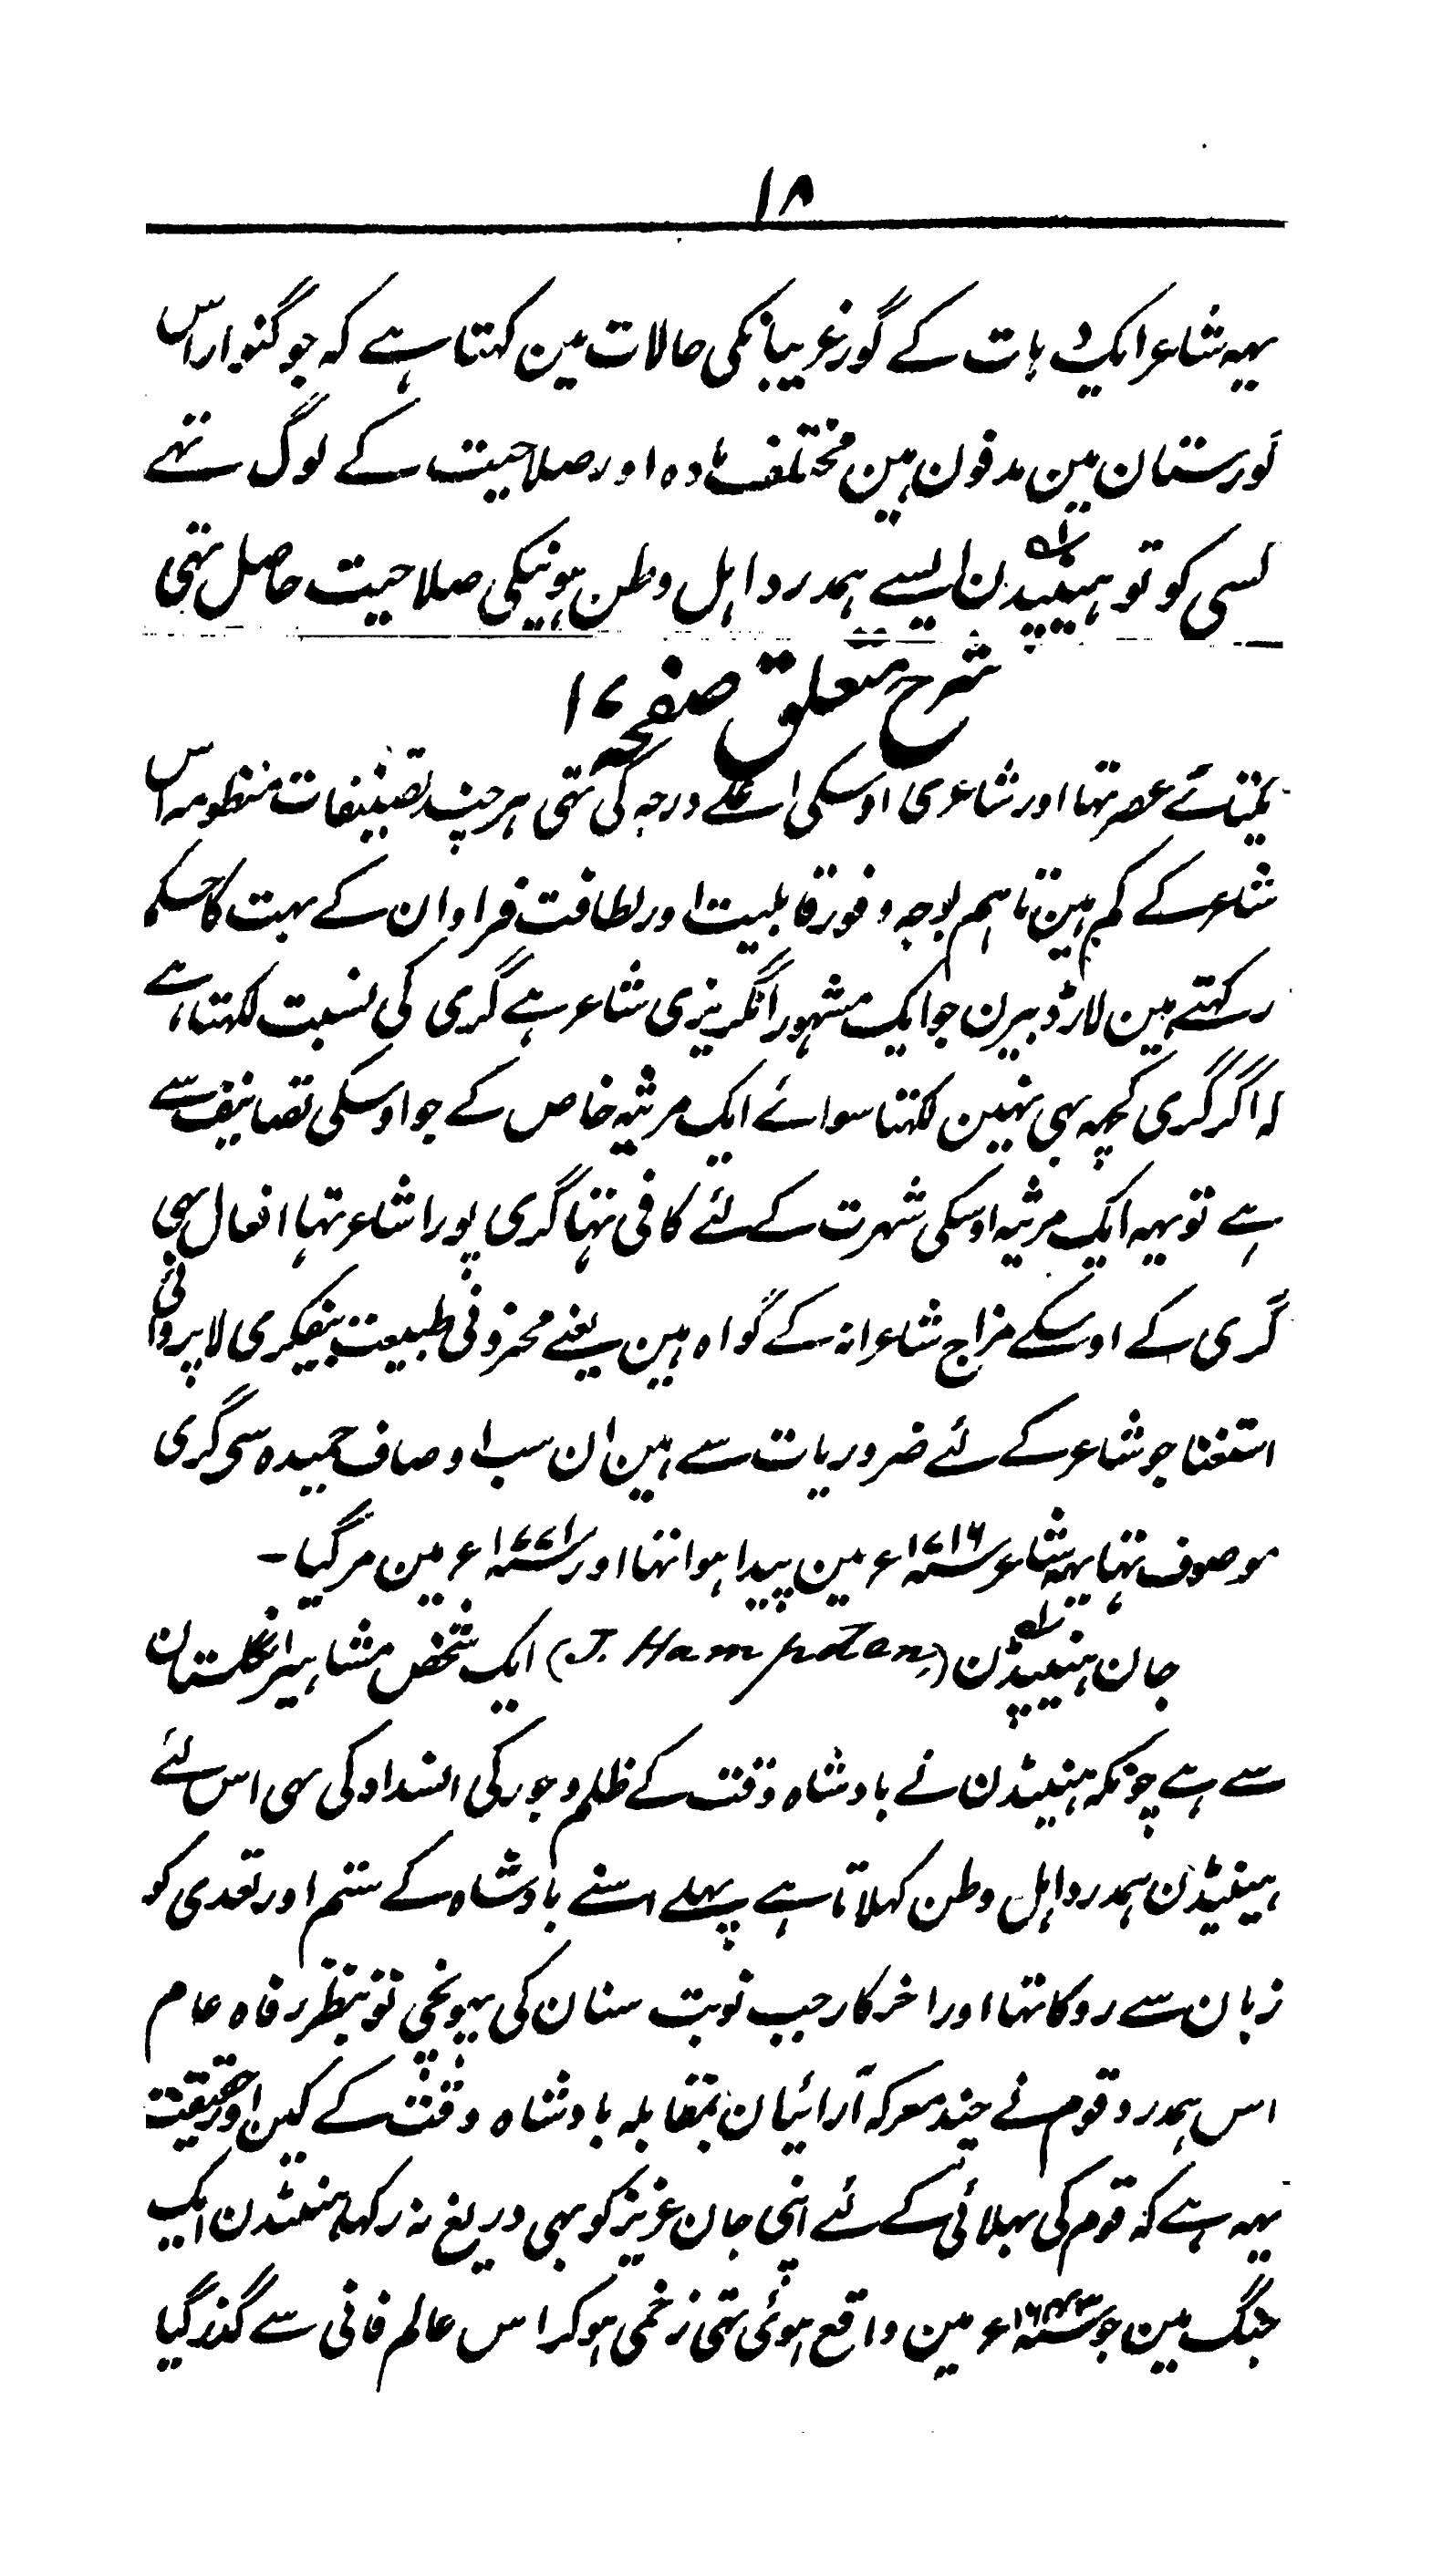 ۱۸
یہہ شاعر ایک دہات کے گورغریبانکی حالات مین کہتا ہے کہ جو گنوار اس
گورستان مین مدفون ہین مختلف مادہ اور صلاحیت کے لوگ تہے
کسی کو تو ہیمپڈن ایسے ہمدرد اہل وطن ہونیکی صلاحیت حاصل تہی
شرح متعلق صفحہ ۱۷
یکتائے عصر تہا اور شاعری اوسکی اعلے درجہ کی تہی ہرچند تصنیفات منظومہ اس
شاعر کے کم ہین تاہم بوجہ وفور قابلیت اور لطافت فراوان کے بہت کا حکم
رکہتے ہین لارڈ بیرن جو ایک مشہور انگریزی شاعر ہے گری کی نسبت لکہتا ہے
کہ اگر گری کچہہ بہی نہین لکہتا سوائے ایک مرثیہ خاص کے جو اوسکی تصانیف سے
ہے تو یہہ ایک مرثیہ اوسکی شہرت کے لئے کافی تہا گری پورا شاعر تہا افعال بہی
گری کے اوسکے مزاج شاعرانہ کے گواہ ہین یعنے محزونی طبیعت بیفکری لاپروائی
استغنا جو شاعر کے لئے ضروریات سے ہین ان سب اوصاف حمیدہ سی گری
موصوف تہا یہہ شاعر سنہ ۱۷۱۶ء مین پیدا ہوا تہا اور سنہ ۱۷۷۱ء مین مرگیا -
جان ہیمپڈن (J. Hampden) ایک شخص مشاہیر انگلستان
سے ہے چونکہ ہیمپڈن نے بادشاہ وقت کے ظلم و جور کی انسداد کی سہی اس لئے
ہیمپڈن ہمدرد اہل وطن کہلاتا ہے پہلے اسنے بادشاہ کے ستم اور تعدی کو
زبان سے روکا تہا اور اخرکار جب نوبت سنان کی پہونچی تو بنظر رفاہ عام
اس ہمدرد قوم نے چند معرکہ آرائیان بمقابلہ بادشاہ وقت کے کین اور حقیقت
یہہ ہے کہ قوم کی بہلائی کے لئے اپنی جان عزیز کو بہی دریغ نہ رکہا ہیمپڈن ایک
جنگ مین جو سنہ ۱۶۴۳ء مین واقع ہوئی تہی زخمی ہوکر اس عالم فانی سے گذر گیا